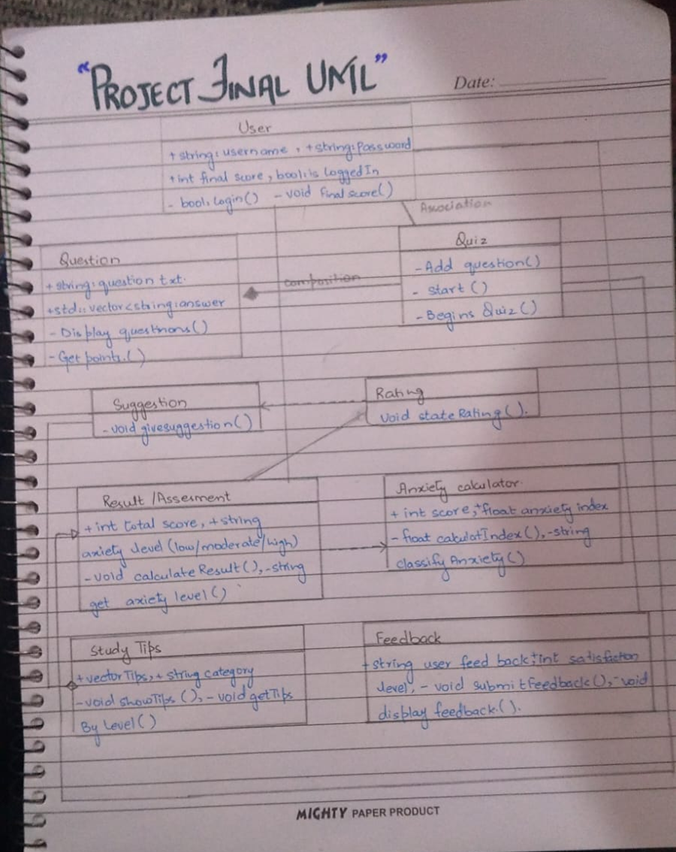 "PROJECT FINAL UML"
Date:
User
+ string: username, + string: Password
+ int final score, bool: is LoggedIn
- bool: Login() - void Final score()
Association
Question
+ string: question txt.
+std:: vector<string: answer
- Display questnons()
- Get points.()
composition
Quiz
- Add question()
- Start ()
- Begins Quiz()
Suggestion
- void givesuggestion()
Rating
void state Rating().
Result /Assesment
+ int total score, + string
anxiety level (low/moderate/high)
- void calculateResult(), - string
get axiety level()
Anxiety calculator.
+ int score, + float anxiety index
- float calculatIndex(), - string
classify Anxiety()
Study Tips
+ vector Tips, + string category
- void showTips (), - void getTips
By Level()
Feedback
+ string user feed back, + Int satisfaction
level, - void submitfeedback(), - void
display feedback.().
MIGHTY PAPER PRODUCT